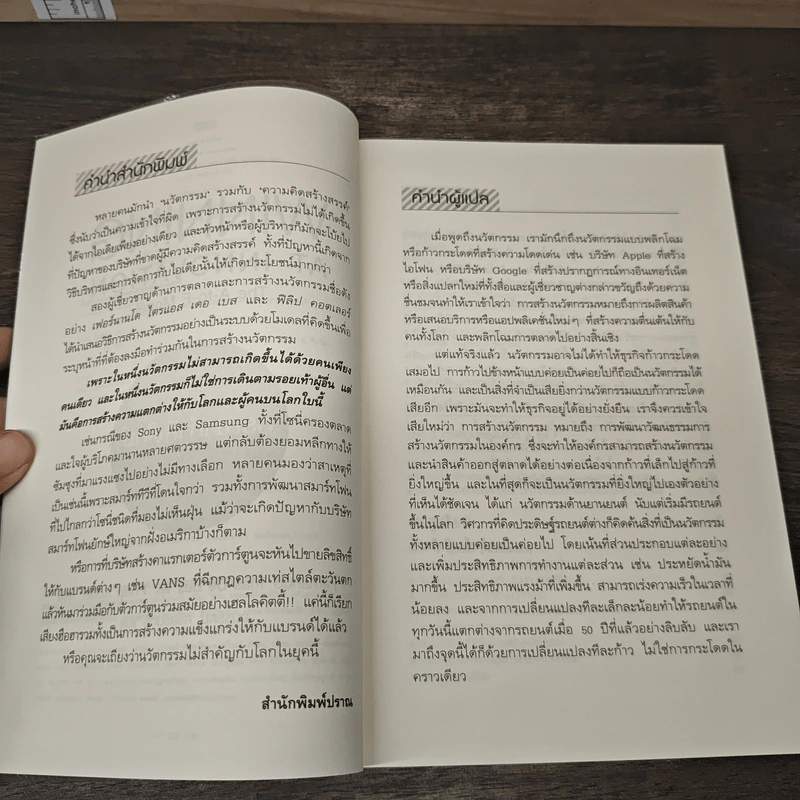 คำนำสำนักพิมพ์
หลายคนมักนำ 'นวัตกรรม' รวมกับ 'ความคิดสร้างสรรค์'
ซึ่งนับว่าเป็นความเข้าใจที่ผิด เพราะการสร้างนวัตกรรมไม่ได้เกิดขึ้น
ได้จากไอเดียเพียงอย่างเดียว และหัวหน้าหรือผู้บริหารก็มักจะโบ้ยไป
ที่ปัญหาของบริษัทที่ขาดผู้มีความคิดสร้างสรรค์ ทั้งที่ปัญหานี้เกิดจาก
วิธีบริหารและการจัดการกับไอเดียนั้นให้เกิดประโยชน์มากกว่า
สองผู้เชี่ยวชาญด้านการตลาดและการสร้างนวัตกรรมชื่อดัง
อย่าง เฟอร์นานโด ไตรแอส เดอ เบส และ ฟิลิป คอตเลอร์
ได้นำเสนอวิธีการสร้างนวัตกรรมอย่างเป็นระบบด้วยโมเดลที่คิดขึ้นเพื่อ
ระบุหน้าที่ที่ต้องลงมือทำร่วมกันในการสร้างนวัตกรรม
เพราะในหนึ่งนวัตกรรมไม่สามารถเกิดขึ้นได้ด้วยคนเพียง
คนเดียว และในหนึ่งนวัตกรรมก็ไม่ใช่การเดินตามรอยเท้าผู้อื่น แต่
มันคือการสร้างความแตกต่างให้กับโลกและผู้คนบนโลกใบนี้
เช่นกรณีของ Sony และ Samsung ทั้งที่โซนี่ครองตลาด
และใจผู้บริโภคมานานหลายศตวรรษ แต่กลับต้องยอมหลีกทางให้
ซัมซุงที่มาแรงแซงไปอย่างไม่มีทางเลือก หลายคนมองว่าสาเหตุที่
เป็นเช่นนี้เพราะสมาร์ททีวีที่โดนใจกว่า รวมทั้งการพัฒนาสมาร์ทโฟน
ที่ไปไกลกว่าโซนี่ชนิดที่มองไม่เห็นฝุ่น แม้ว่าจะเกิดปัญหากับบริษัท
สมาร์ทโฟนยักษ์ใหญ่จากฝั่งอเมริกาบ้างก็ตาม
หรือการที่บริษัทสร้างคาแรกเตอร์ตัวการ์ตูนจะหันไปขายลิขสิทธิ์
ให้กับแบรนด์ต่างๆ เช่น VANS ที่ฉีกกฎความเท่สไตล์ตะวันตก
แล้วหันมาร่วมมือกับตัวการ์ตูนร่วมสมัยอย่างเฮลโลคิตตี้!! แค่นี้ก็เรียก
เสียงฮือฮารวมทั้งเป็นการสร้างความแข็งแกร่งให้กับแบรนด์ได้แล้ว
หรือคุณจะเถียงว่านวัตกรรมไม่สำคัญกับโลกในยุคนี้
สำนักพิมพ์ปราณ
คำนำผู้แปล
เมื่อพูดถึงนวัตกรรม เรามักนึกถึงนวัตกรรมแบบพลิกโฉม
หรือก้าวกระโดดที่สร้างความโดดเด่น เช่น บริษัท Apple ที่สร้าง
ไอโฟน หรือบริษัท Google ที่สร้างปรากฏการณ์ทางอินเทอร์เน็ต
หรือสิ่งแปลกใหม่ที่ทั้งสื่อและผู้เชี่ยวชาญต่างกล่าวขวัญถึงด้วยความ
ชื่นชมจนทำให้เราเข้าใจว่า การสร้างนวัตกรรมหมายถึงการผลิตสินค้า
หรือเสนอบริการหรือแอปพลิเคชั่นใหม่ๆ ที่สร้างความตื่นเต้นให้กับ
คนทั้งโลก และพลิกโฉมการตลาดไปอย่างสิ้นเชิง
แต่แท้จริงแล้ว นวัตกรรมอาจไม่ได้ทำให้ธุรกิจก้าวกระโดด
เสมอไป การก้าวไปข้างหน้าแบบค่อยเป็นค่อยไปก็ถือเป็นนวัตกรรมได้
เหมือนกัน และเป็นสิ่งที่จำเป็นเสียยิ่งกว่านวัตกรรมแบบก้าวกระโดด
เสียอีก เพราะมันจะทำให้ธุรกิจอยู่ได้อย่างยั่งยืน เราจึงควรเข้าใจ
เสียใหม่ว่า การสร้างนวัตกรรม หมายถึง การพัฒนาวัฒนธรรมการ
สร้างนวัตกรรมในองค์กร ซึ่งจะทำให้องค์กรสามารถสร้างนวัตกรรม
และนำสินค้าออกสู่ตลาดได้อย่างต่อเนื่องจากก้าวที่เล็กไปสู่ก้าวที่
ยิ่งใหญ่ขึ้น และในที่สุดก็จะเป็นนวัตกรรมที่ยิ่งใหญ่ไปเองตัวอย่าง
ที่เห็นได้ชัดเจน ได้แก่ นวัตกรรมด้านยานยนต์ นับแต่เริ่มมีรถยนต์
ขึ้นในโลก วิศวกรที่คิดประดิษฐ์รถยนต์ต่างก็คิดค้นสิ่งที่เป็นนวัตกรรม
ทั้งหลายแบบค่อยเป็นค่อยไป โดยเน้นที่ส่วนประกอบแต่ละอย่าง
และเพิ่มประสิทธิภาพการทำงานแต่ละส่วน เช่น ประหยัดน้ำมัน
มากขึ้น ประสิทธิภาพแรงม้าที่เพิ่มขึ้น สามารถเร่งความเร็วในเวลาที่
น้อยลง และจากการเปลี่ยนแปลงทีละเล็กละน้อยทำให้รถยนต์ใน
ทุกวันนี้แตกต่างจากรถยนต์เมื่อ 50 ปีที่แล้วอย่างลิบลับ และเรา
มาถึงจุดนี้ได้ก็ด้วยการเปลี่ยนแปลงทีละก้าว ไม่ใช่การกระโดดใน
คราวเดียว